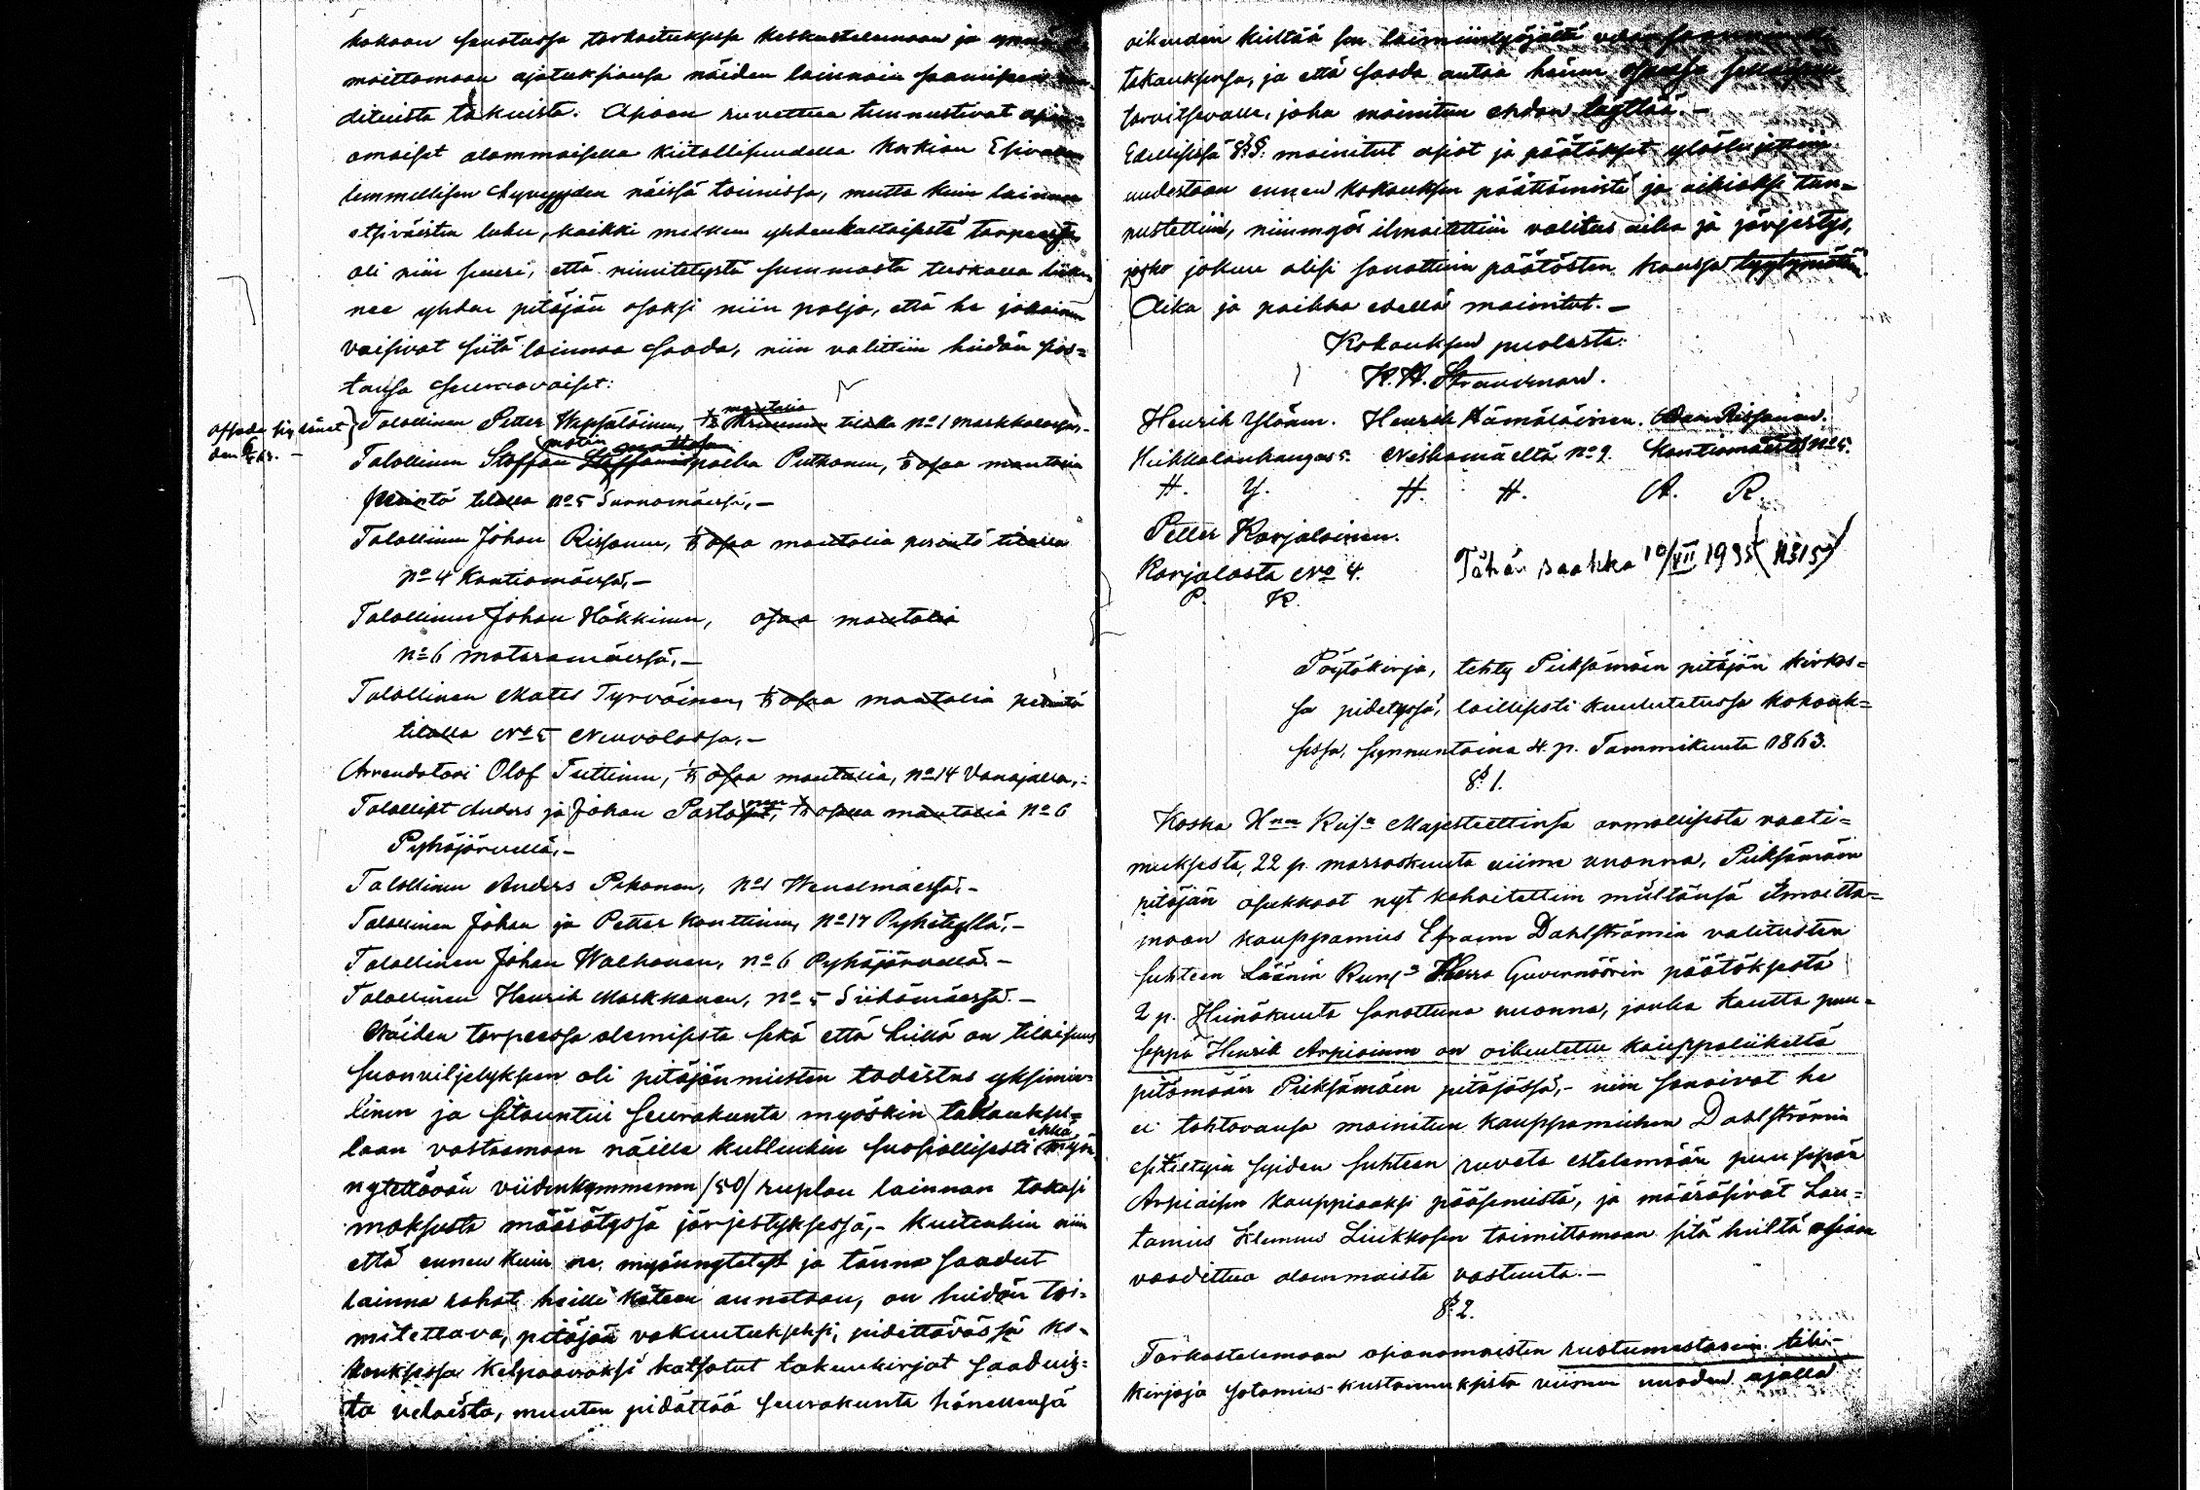 kokoon sanotussa tarkoituksessa keskustelemaan ja
moittamaan ajatuksiansa näiden lainain saamisesta
dituista takuista. Asiaan ruvettua tunnustivat
omaiset alammaisella kiitollisuudella korkian Esivallan
lemmellisen hyvyyden näissä toimissa, mutta kuin lainan
etsiväisten luku, kaikki melkein yhdenkaltaisesta tarpeesta
oli niin suuri, että nimitetystä summasta tuskalla liik-
nee yhden pitäjän osaksi niin paljo, että he jokainen
voisivat siitä lainaa saada, niin valittiin heidän sias=
tansa seuraavaiset:
Talollinen Petter Hyypiäläinen, mantalia tiedolla No 1
Talollinen Staffan Staffaninpoika Putkonen, 1/3 osaa mantalia
perintö tilalla No 5 Surnomäessä,-
Talollinen Johan Rissanen, osaa mantalia perintö tilalla
No 4 Kontiomäessä,-
Talollinen Johan Häkkinen, osaa mantalia
No 6 Mataramäessä,-
Talollinen Mats Tyrväinen, osaa mantalia perintö
tilalla No 5 Neuvolassa,-
Arrendatori Olof Tuttinen, osaa mantalia, No 14 Vanajalla,-
Talolliset Anders ja Johan Parta osalla mantalia No 6
Pyhäjärvellä,-
Talollinen Anders Pekonen, No 1
Talollinen Johan ja Petter Kouttinen, No 17 Pyhityllä,-
Talollinen Johan Walkonen, No 6 Pyhäjärvellä.-
Talollinen Henrik Markkanen, No 5 Siikämäessä.-
Näiden tarpeessa olemisesta sekä että heillä on tilaisuus
suonviljelyksen oli pitäjänmiesten todistus yksimie=
linen ja sitountui seurakunta myöskin takauksel=
laan vastaamaan näille kullenkin suosiollisesti ehkä myön
nytettävän viidenkymmenen /50/ ruplan lainan takasi
maksusta määrätyssä järjestyksessä,- kuitenkin niin
että ennen kuin ne, myönnytetyt ja tänne saadut
laina rahat heille käteen annetaan, on heidän toi=
mitettava, pitäjän vakuutukseksi, pidettävässä ko=
kouksessa kelpaavaksi katsotut takuukirjat saaduis=
ta veloista, muuten pidättää seurakunta hänellensä
den 6/5 63.
oikeuden kieltää sen laiminlyöjältä
takauksensa, ja että saada antaa hänen
tarvitsevalle, joka mainitun ehdon täyttää.-
Edellisissä §§: mainitut asiat ja päätökset ylösluettiin
uudestaan ennen kokouksen päättämistä ja oikiaksi tun=
nustettiin, niinmyös ilmoitettiin valitus aika ja järjestys,
josko jokuu olisi sanottuin päätösten kanssa tyytymätön.
Aika ja paikka edellä mainitut.-
Kokouksen puolesta:
K. H. Strandman.
Henrik Ylönen. Henrik Hämäläinen. Adam Rissanen.
Heikkalankangas 5. Neskamäeltä No 9. Kontiomäestä No 5.
H. Y. H. H. A. R.
Petter Karjalainen.
Karjalasta No 4.
P. K.
Tähän saakka 10/VII 1935 (N:315)
Pöytäkirja, tehty Pieksämäen pitäjän kirkos=
sa pidetyssä, laillisesti kuulutetussa kokouk=
sessa, Synnuntaina 4. p. Tammikuuta 1863.
§ 1.
Koska Hnen Keisn Majesteettinsa armollisesta vaati=
muksesta, 22 p. marraskuuta viime vuonna, Pieksämäen
pitäjän asukkaat nyt kehoitettiin mieltänsä ilmoitta=
maan kauppamies Efraim Dahlströmin valitusten
suhteen Läänin Kunn Herra Guvernöörin päätöksestä
2 p. Heinäkuuta sanottuna vuonna, jonka kautta puu=
seppä Henrik Arpiainen on oikeutettu kauppaliikettä
pitämään Pieksämäen pitäjässä,- niin sanoivat he
ei tahtovansa mainitun kauppamiehen Dahlströmin
esitettyin syiden suhteen ruveta estelemään puu sepän
Arpiaisen kauppiaaksi pääsemistä, ja määräsivät Lau=
tamies Klemens Liukkosen toimittamaan sitä heiltä asiaan
vaadittua alammaista vastausta.-
§ 2.
Tarkastelemaan asianomaisten ruotumestarein tili-
kirjoja sotamies-kustannuksista viimen vuoden ajalla